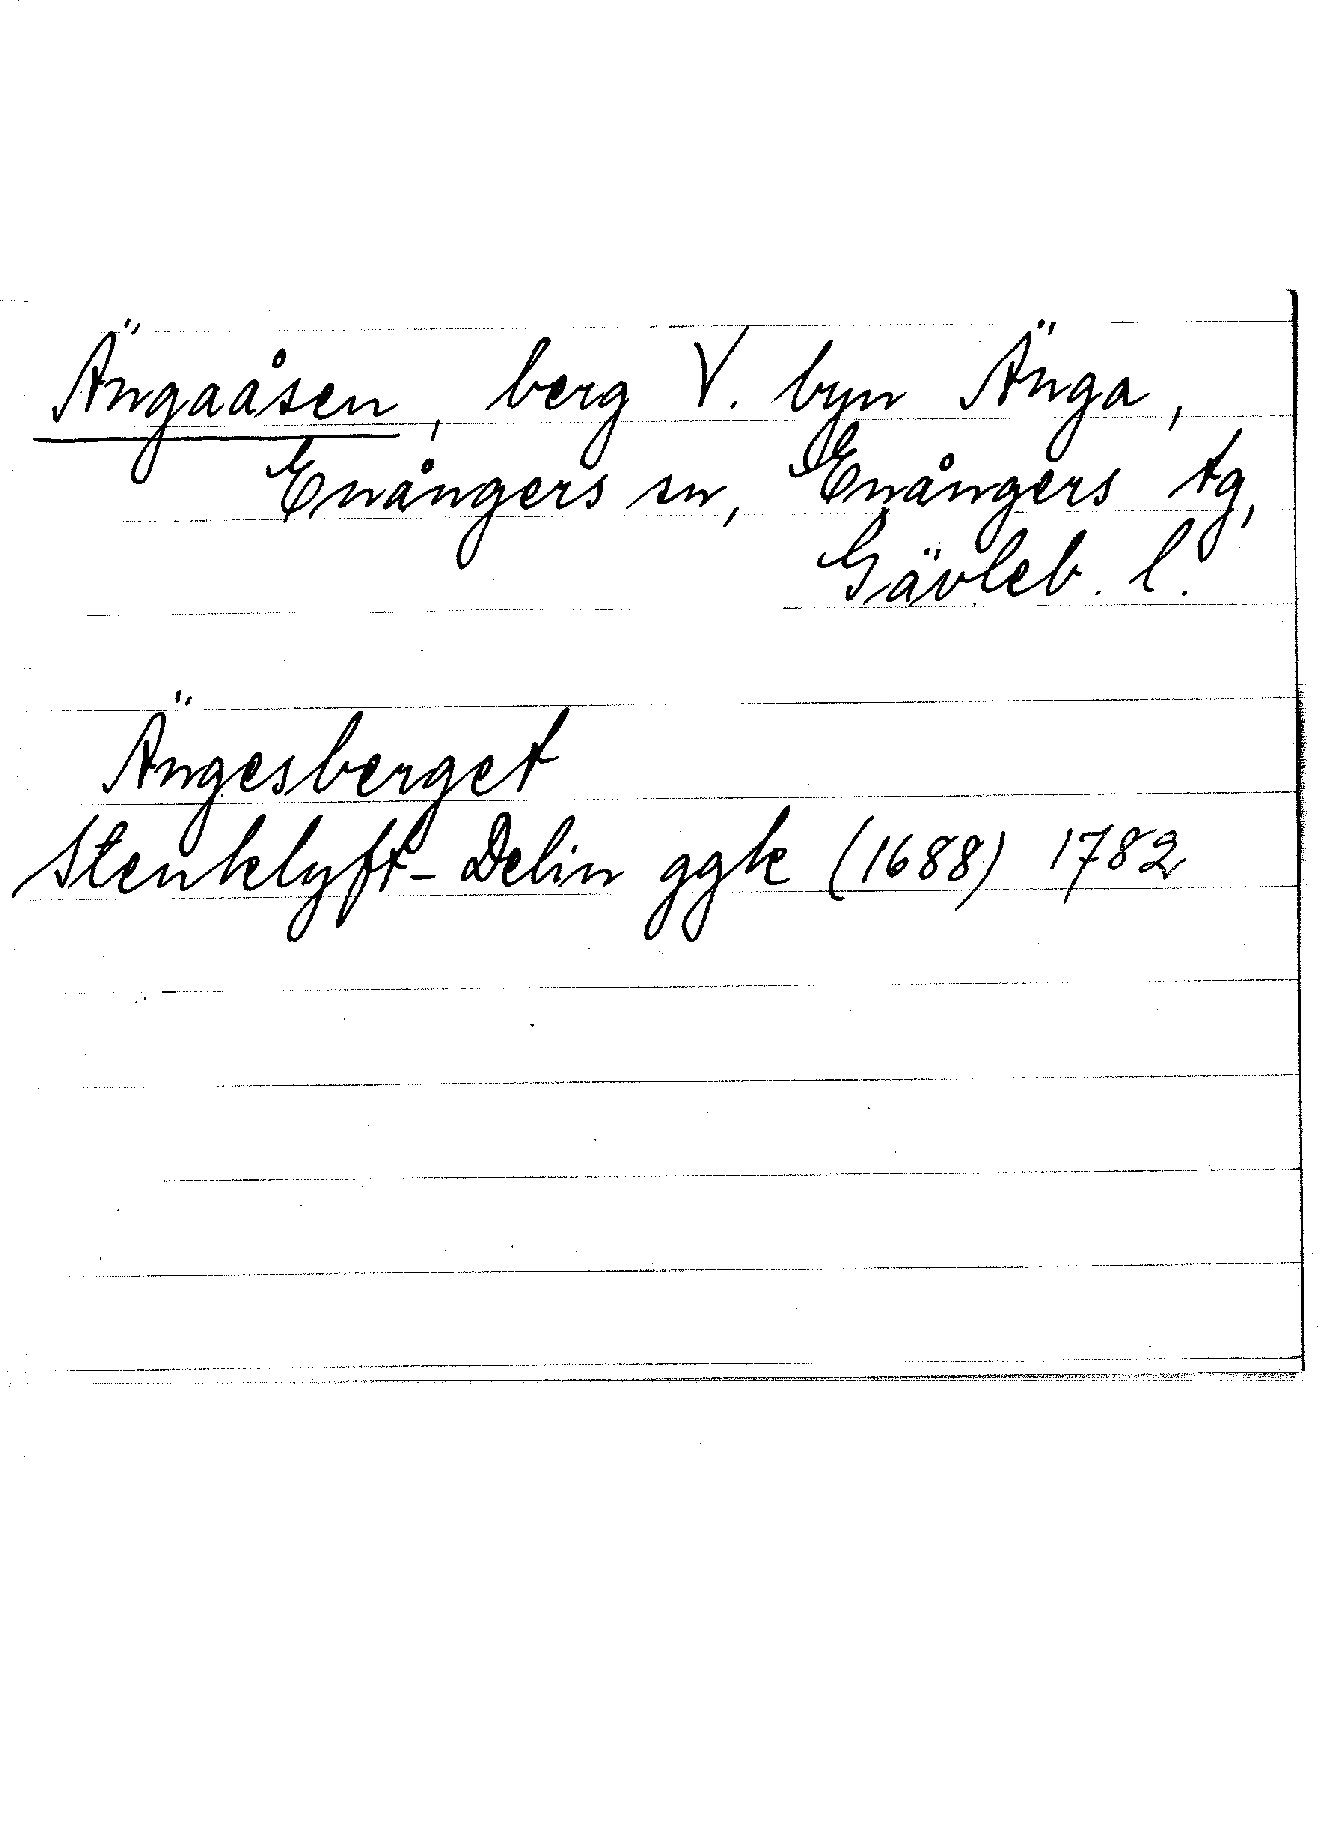 Ängaåsen, berg V. byn Änga,
Enångers sn, Enångers tg,
Gävleb. l.
Ängesberget
Stenklyft- Delin ggk (1688) 1782